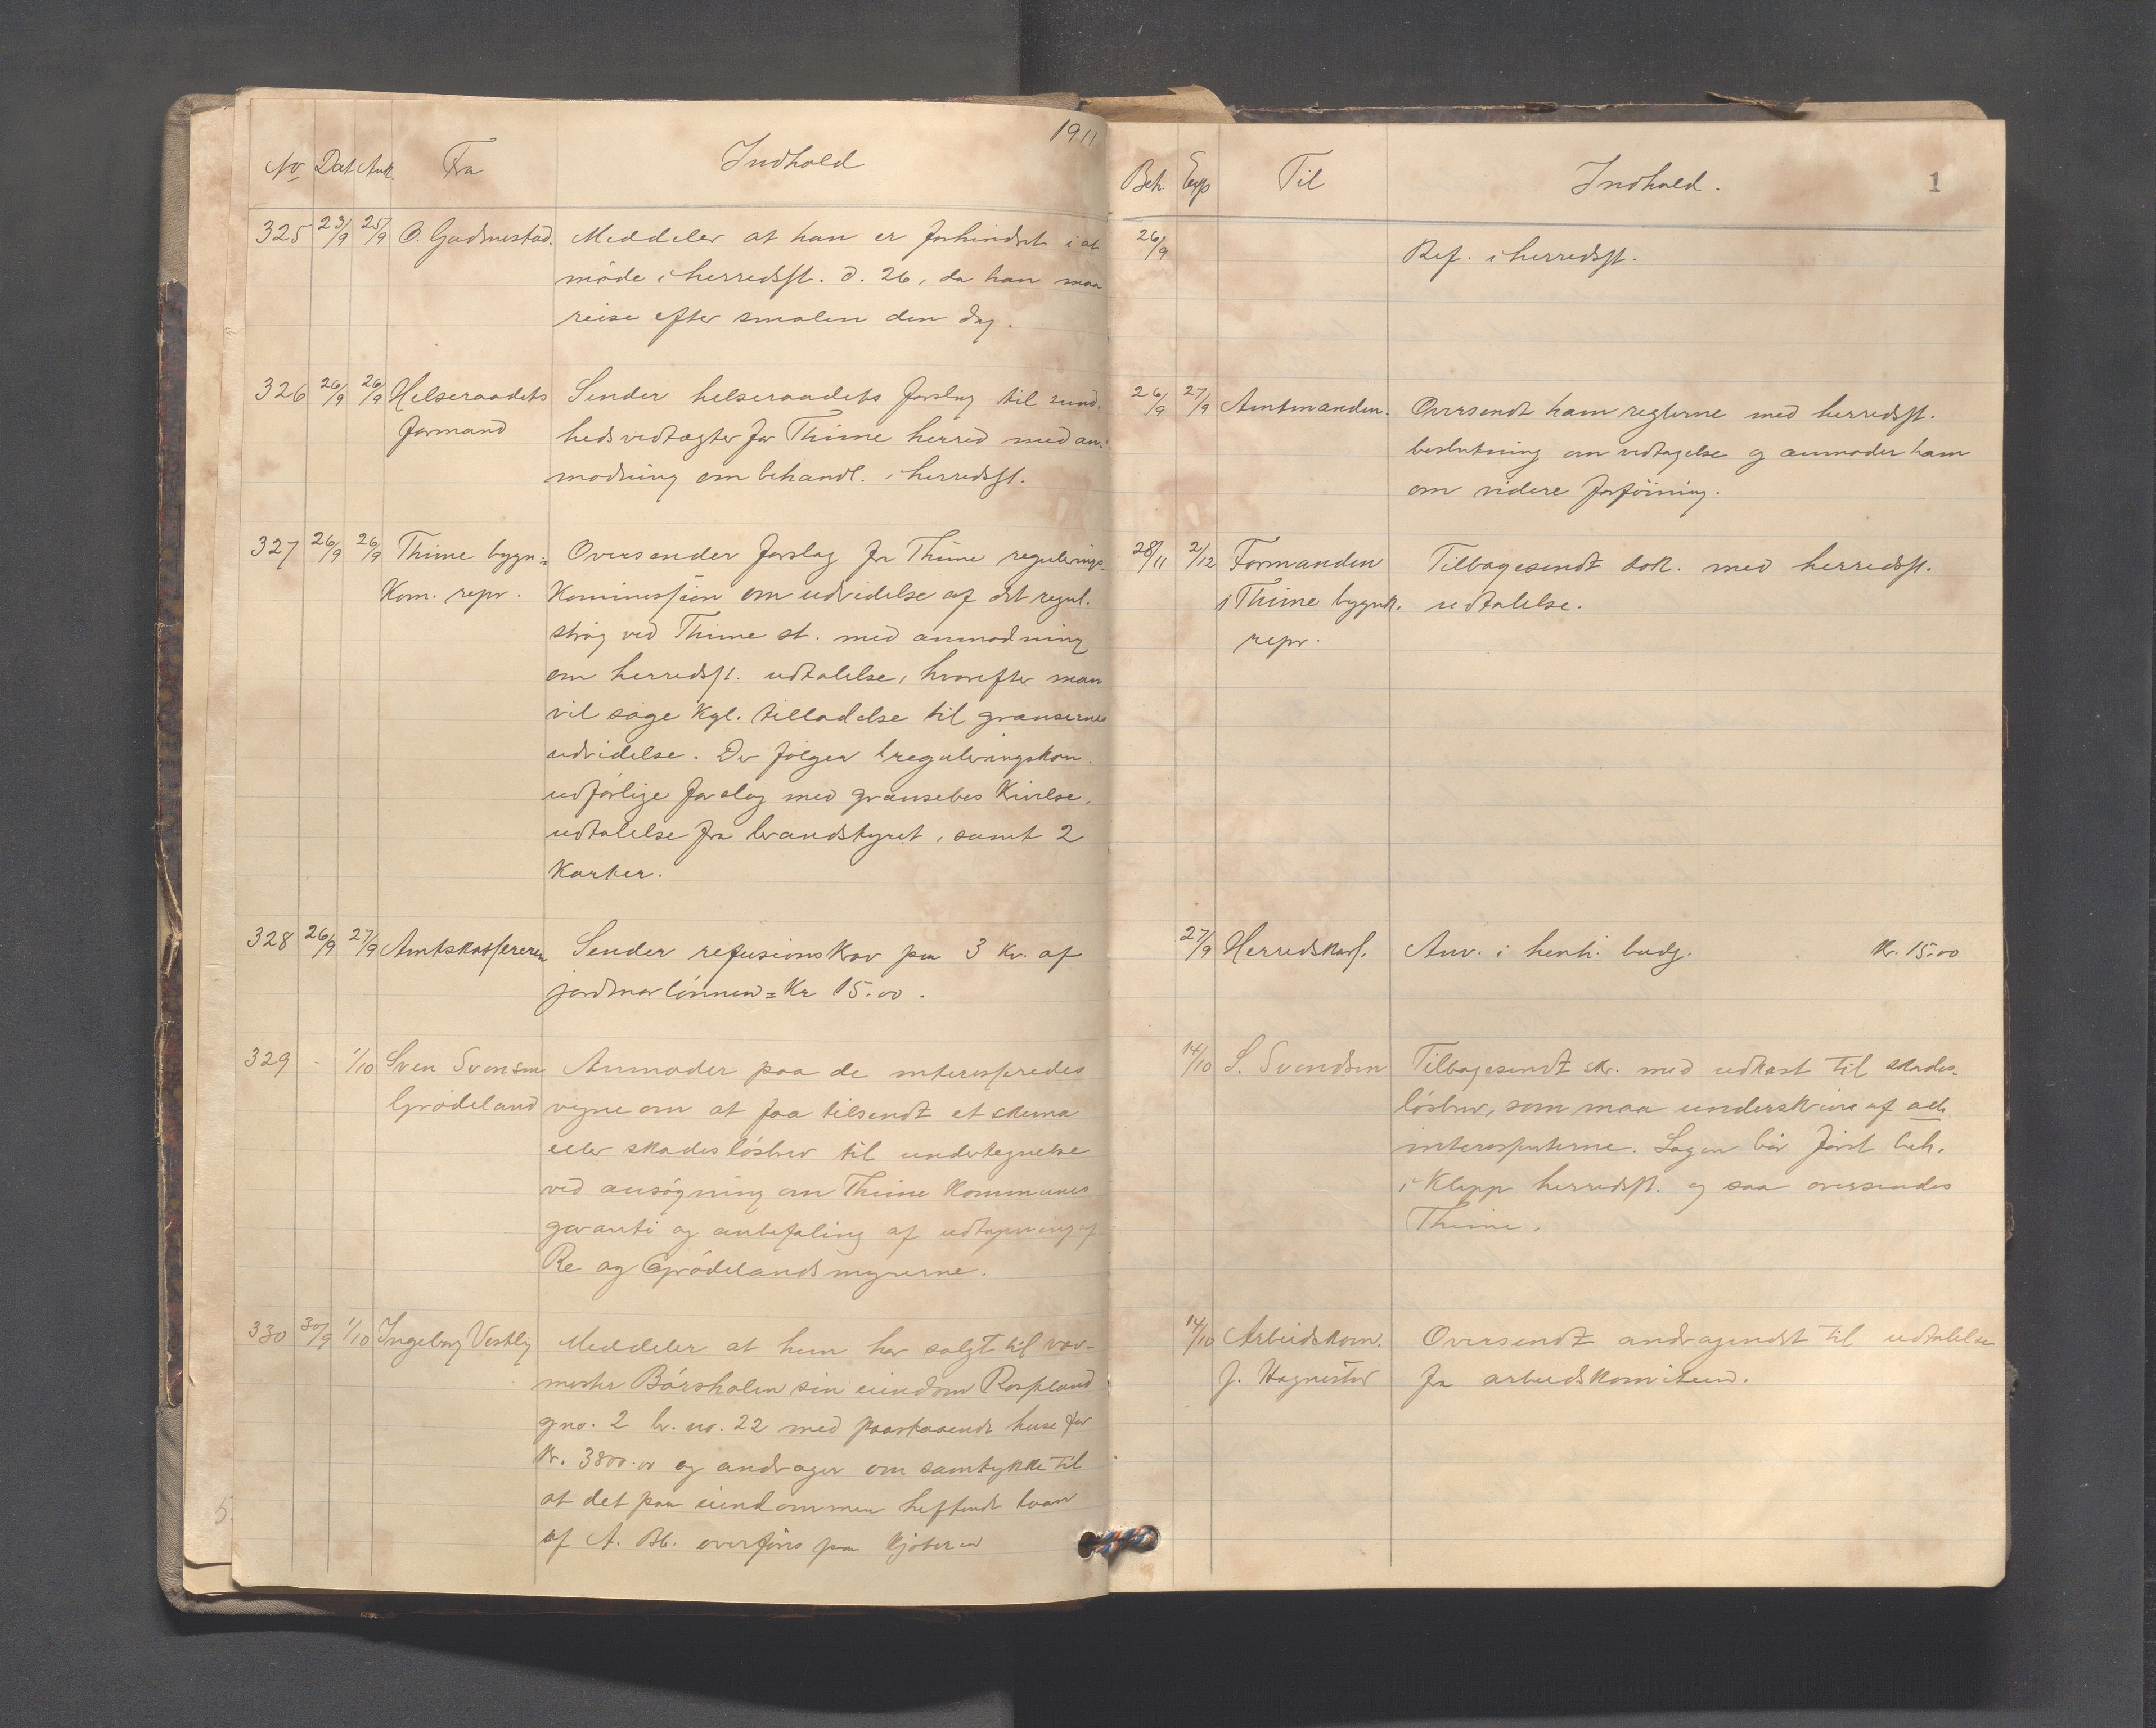 1911
No Dat Ank. Fra Indhold
325 23/9 25/9 O. Gudmestad. Meddeler at han er forhindret i at
møde i herredsst. d. 26, da han maa
reise efter smalen den dag.
326 26/9 26/9 Helseraadets Sender helseraadets forslag til sund-
formand hedsvedtægter for Thime herred med an-
modning om behandl. i herredsst.
327 26/9 26/9 Thime bygn.= Oversender forslag fra Thime regulerings-
Kom. repr. Kommission om udvidelse af det regul.
strøg ved Thime st. med anmodning
om herredsst. udtalelse, hvorefter man
vil søge Kgl. tilladelse til grænsernes
udvidelse. Der følger reguleringskom.
udførlige forslag med grænsebeskrivelse,
udtalelse fra brandstyret, samt 2
Karter.
328 26/9 27/9 Amtskassereren Sender refusionskrav paa 3 Kv. af
jordmorlønnen = Kr 15.00.
329 - 1/10 Sven Svensen Anmoder paa de interesseredes
Grødeland vegne om at faa tilsendt et skema
eller skadesløsbrev til undertegnelse
ved ansøgning om Thime Kommunes
garanti og anbefaling af udtapning af
Re og Grødelandsmyrerne.
330 30/9 1/10 Ingeborg Vestly Meddeler at hun har solgt til
mester Børsholen sin eiendom Rossland
gno. 2 br. no. 22 med paastaaende huse for
Kr. 3800.00 og andrager om samtykke til
at det paa eiendommen heftende laan
af A. Bb. overføres paa Kjøberen
Beh. Exp Til Indhold. 1
26/9 Ref. i herredsst.
26/9 27/9 Amtmanden. Oversendt ham reglerne med herredsst.
beslutning om vedtagelse og anmoder ham
om videre forføining.
28/11 2/12 Formanden Tilbagesendt dok. med herredsst.
i Thime bygnk. udtalelse.
repr.
27/9 Herredskass. Anv. i henh. budg. Kr. 15.00
14/10 S. Svendsen Tilbagesendt skr. med udkast til skades-
løsbrev, som maa underskrives af alle
interessenterne. Sagen bør først beh.
i Klepp herredsst. og saa oversendes
Thime.
14/10 Arbeidskom. Oversendt andragendet til udtalelse
J. Hognestad fra arbeidskomiteen.